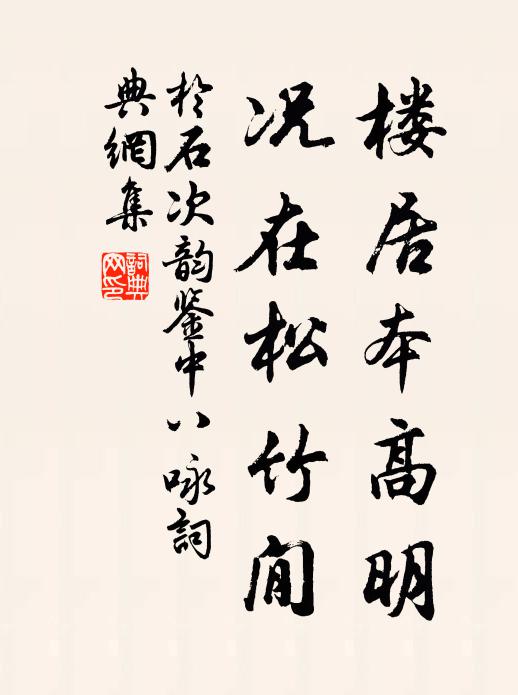 楼居本高明
况在松竹间
於石次韵鉴中八咏詞
典網集
詞典网印